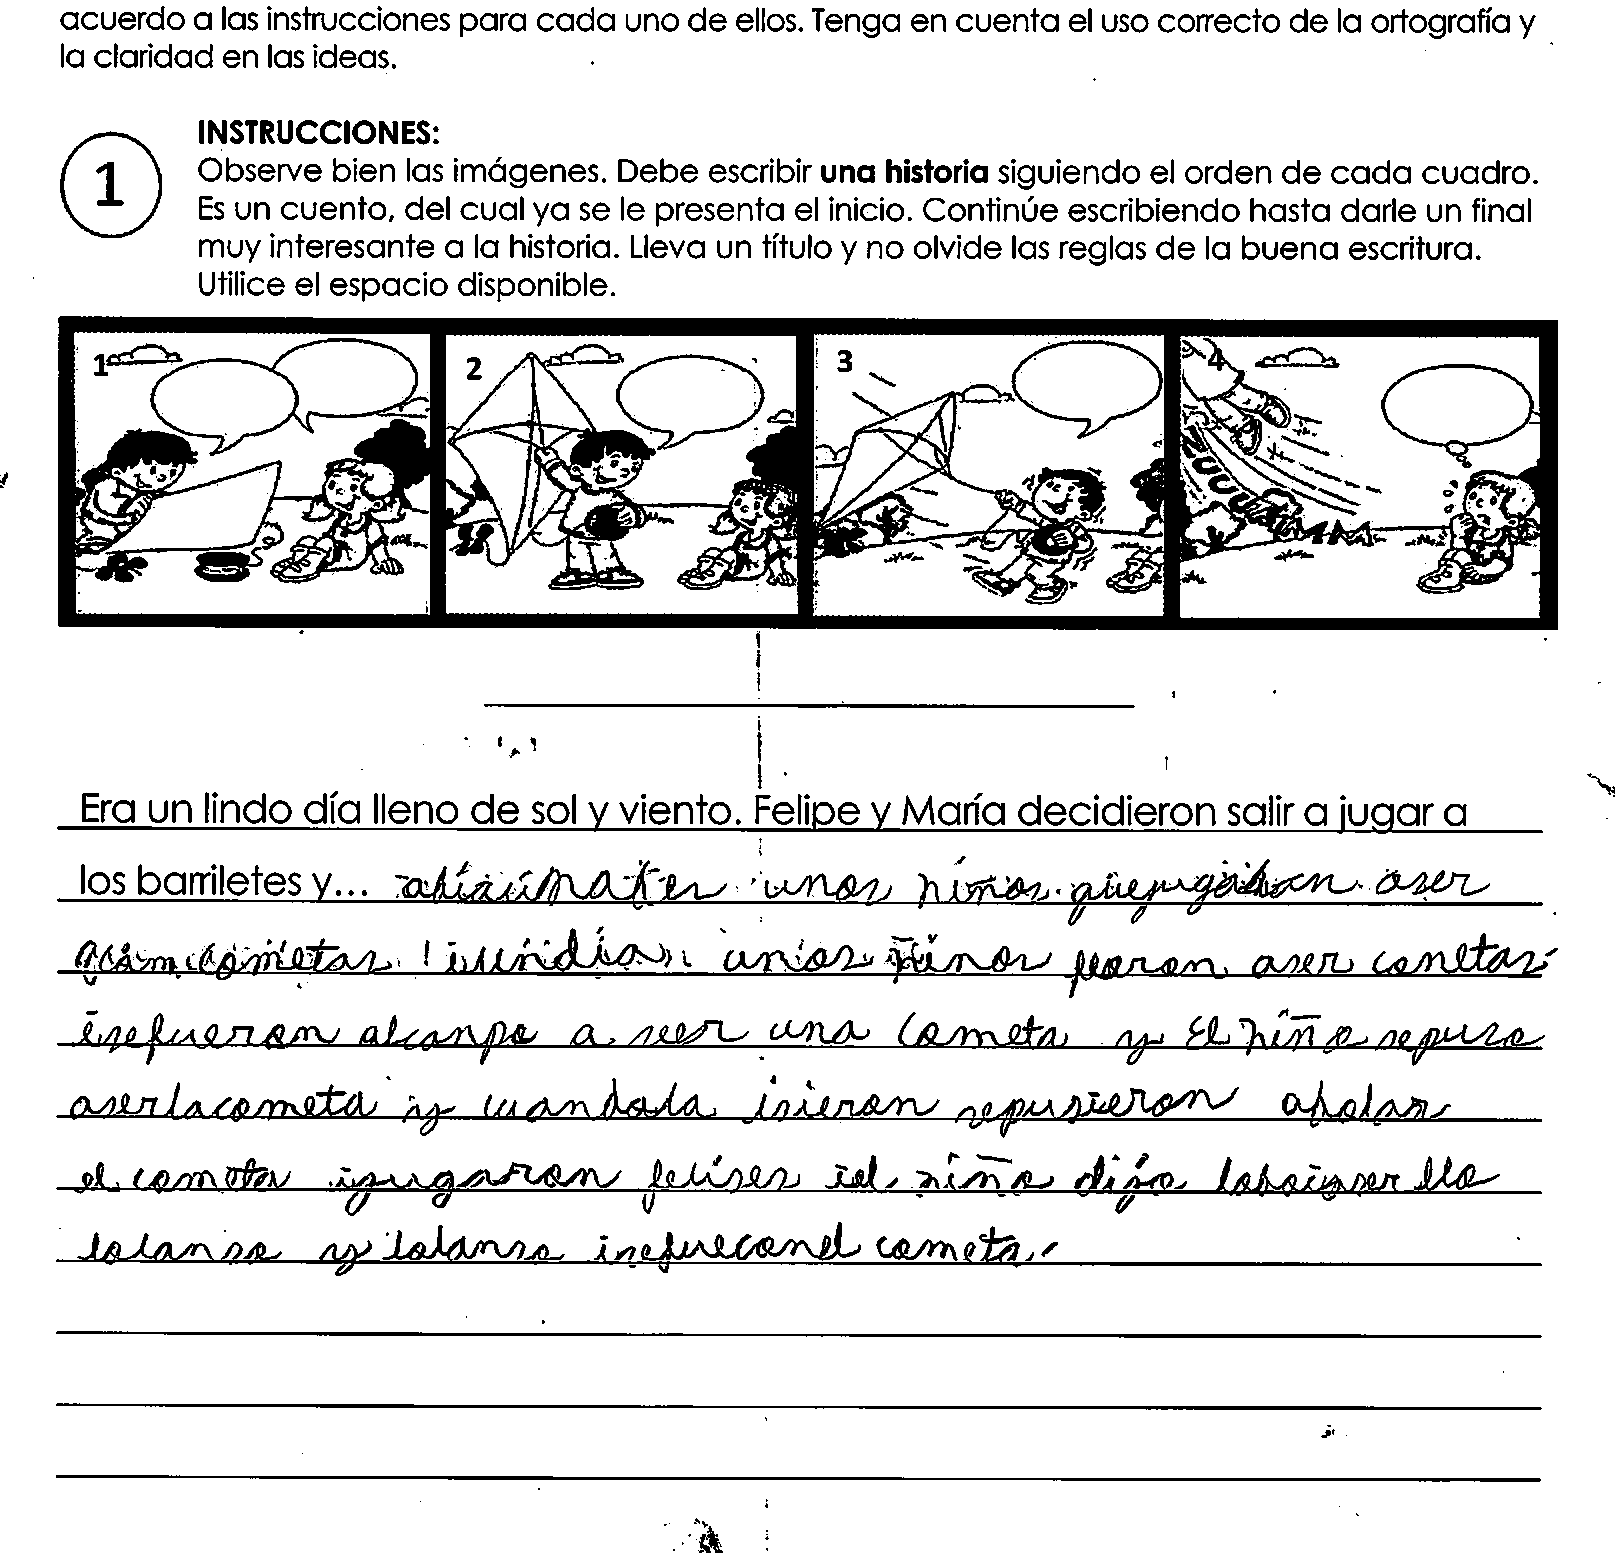 acuerdo a las instrucciones para cada uno de ellos. Tenga en cuenta el uso correcto de la ortografía y
la claridad en las ideas.
1
INSTRUCCIONES:
Observe bien las imágenes. Debe escribir una historia siguiendo el orden de cada cuadro.
Es un cuento, del cual ya se le presenta el inicio. Continúe escribiendo hasta darle un final
muy interesante a la historia. Lleva un título y no olvide las reglas de la buena escritura.
Utilice el espacio disponible.
1 2 3 4
Era un lindo día lleno de sol y viento. Felipe y María decidieron salir a jugar a
los barriletes y... unos niños quejugaban aser
cometas iundia unos niños aser conetas
isefueron alcanpo a seer una cometa y El niño sepuso
aserlacometa y cuandola isieron sepusieron abolar
el cometa ijugaron felises iel niño dijo lo
lolanso y lolanso isefueconel cometa.